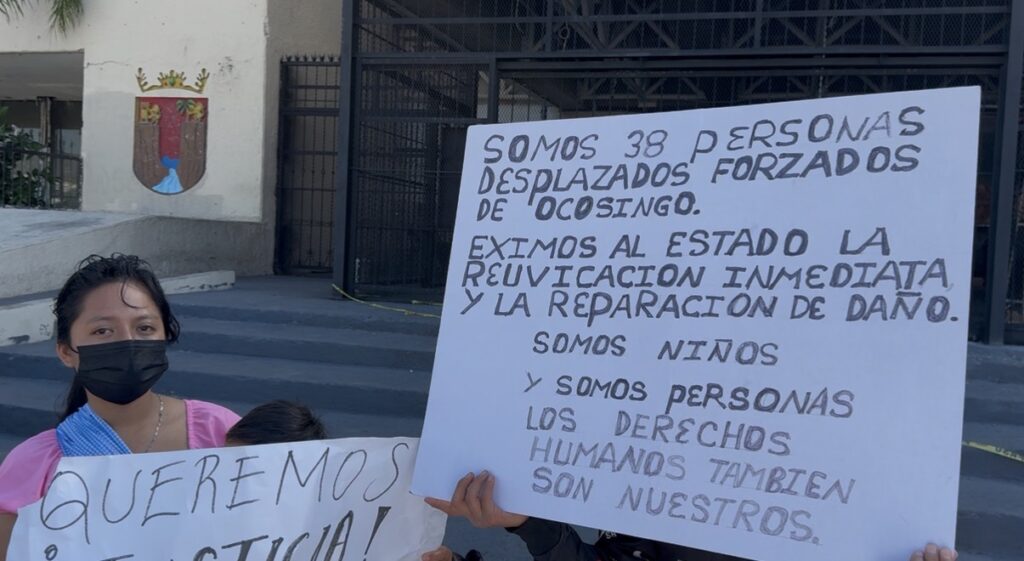 SOMOS 38 PERSONAS
DESPLAZADOS FORZADOS
DE OCOSINGO.
EXIMOS AL ESTADO LA
REUVICACION INMEDIATA
Y LA REPARACION DE DAÑO.
SOMOS NIÑOS
Y SOMOS PERSONAS
LOS DERECHOS
HUMANOS TAMBIEN
SON NUESTROS.
QUEREMOS
¡JUSTICIA!